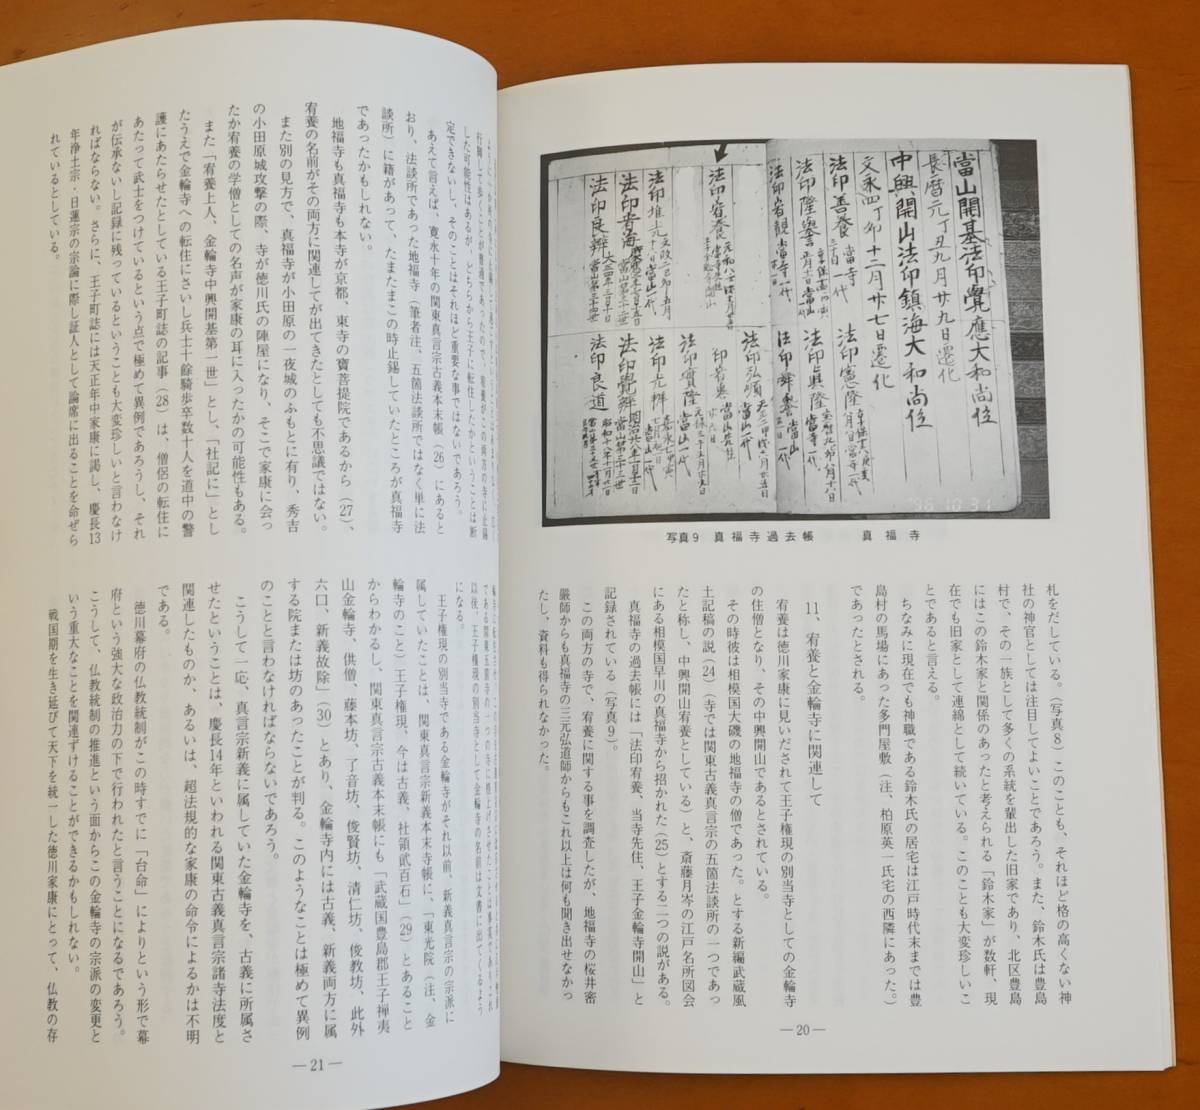 當山開基法印覺應大和尚位
長暦元丁丑九月廿九日遷化
中興開山法印鎮海大和尚位
文永四丁卯十二月廿七日遷化
法印善養
當寺一代
法印憲隆
法印隆譽
法印眞隆
當寺一代
法印宥觀
當寺一代
法印舜譽
當山一代
法印弘順
當山一代
法印宥養
法印堆土
當山一代
法印實隆
當山一代
法印光辨
當山一代
法印宥海
法印覺辨
當山第三十三世
法印良辨
法印良道
'96 10 31
写真9 真福寺過去帳 真福寺
札をだしている。(写真8) このことも、それほど格の高くない神
社の神官としては注目してよいことであろう。また、鈴木氏は豊島
村で、その一族として多くの系統を輩出した旧家であり、北区豊島
にはこの鈴木家と関係のあったと考えられる「鈴木家」が数軒、現
在でも旧家として連綿として続いている。このことも大変珍しいこ
とであると言える。
ちなみに現在でも神職である鈴木氏の居宅は江戸時代末までは豊
島村の馬場にあった多門屋敷(注、柏原英一氏宅の西隣にあった。)
であったとされる。
11、宥養と金輪寺に関連して
宥養は徳川家康に見いだされて王子権現の別当寺としての金輪寺
の住僧となり、その中興開山であるとされている。
その時彼は相模国大磯の地福寺の僧であった。とする新編武蔵風
土記稿の説(24)(寺では関東古義真言宗の五箇法談所の一つであっ
たと称し、中興開山宥養としている)と、斎藤月岑の江戸名所図会
にある相模国早川の真福寺から招かれた(25)とする二つの説がある。
真福寺の過去帳には「法印宥養、当寺先住、王子金輪寺開山」と
記録されている(写真9)。
この両方の寺で、宥養に関する事を調査したが、地福寺の桜井密
厳師からも真福寺の三元弘道師からもこれ以上は何も聞き出せなかっ
たし、資料も得られなかった。
—20—
行脚して歩くことが普通であったので、宥養がこの両方の寺に止錫
した可能性はあるが、どちらから王子に転住したかということは断
定できないし、そのことはそれほど重要な事ではないであろう。
あえて言えば、寛永十年の関東真言宗古義本末帳(26)にあると
おり、法談所であった地福寺(筆者注、五箇法談所ではなく単に法
談所)に籍があって、たまたまこの時止錫していたところが真福寺
であったかもしれない。
地福寺も真福寺も本寺が京都、東寺の寶菩提院であるから(27)、
宥養の名前がその両方に関連してが出てきたとしても不思議ではない。
また別の見方で、真福寺が小田原の一夜城のふもとに有り、秀吉
の小田原城攻撃の際、寺が徳川氏の陣屋になり、そこで家康に会っ
たか宥養の学僧としての名声が家康の耳に入ったかの可能性もある。
また「宥養上人、金輪寺中興開基第一世」とし、「社記に」とし
たうえで金輪寺への転住にさいし兵士十餘騎歩卒数十人を道中の警
護にあたらせたとしている王子町誌の記事(28)は、僧侶の転住に
あたって武士をつけているという点で極めて異例であろうし、それ
が伝承ないし記録に残っているということも大変珍しいと言わなけ
ればならない。さらに、王子町誌には天正年中家康に謁し、慶長13
年浄土宗・日蓮宗の宗論に際し証人として論席に出ることを命ぜら
れているとしている。
以後、王子権現の別当寺として金輪寺の名前は文書に出てくるよう
になる。
王子権現の別当寺である金輪寺がそれ以前、新義真言宗の宗派に
属していたことは、関東真言宗新義本末寺帳に、「東光院(注、金
輪寺のこと)王子権現、今は古義、社領貮百石」(29)とあること
からわかるし、関東真言宗古義本末帳にも「武蔵国豊島郡王子禅夷
山金輪寺、供僧、藤本坊、了音坊、俊賢坊、清仁坊、俊教坊、此外
六口、新義故除」(30)とあり、金輪寺内には古義、新義両方に属
する院または坊のあったことが判る。このようなことは極めて異例
のことと言わなければならないであろう。
こうして一応、真言宗新義に属していた金輪寺を、古義に所属さ
せたということは、慶長14年といわれる関東古義真言宗諸寺法度と
関連したものか、あるいは、超法規的な家康の命令によるかは不明
である。
徳川幕府の仏教統制がこの時すでに「台命」によりという形で幕
府という強大な政治力の下で行われたと言うことになるであろう。
こうして、仏教統制の推進という面からこの金輪寺の宗派の変更と
いう重大なことを関連ずけることができるかもしれない。
戦国期を生き延びて天下を統一した徳川家康にとって、仏教の存
—21—